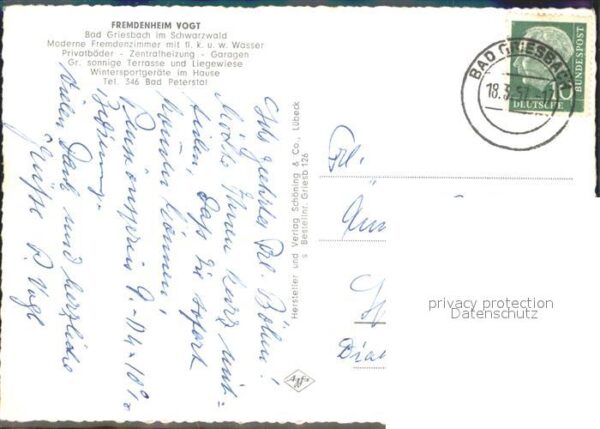 FREMDENHEIM VOGT
Bad Griesbach im Schwarzwald
Moderne Fremdenzimmer mit fl. k. u. w. Wasser
Privatbäder - Zentralheizung - Garagen
Gr. sonnige Terrasse und Liegewiese
Wintersportgeräte im Hause
Tel. 346 Bad Peterstal
Sehr geehrtes Frl. Böhm!
Möchte Ihnen kurz mit-
teilen, daß Sie sofort
können.
Pensionspreis 9.- DM + 10%
Bedienung.
Vielen Dank und herzliche
Grüße P. Vogt
Hersteller und Verlag Schöning & Co., Lübeck
s Bestellnr. Griesb 126
Agfa
Frl.
BAD GRIESBACH
18.3.57
DEUTSCHE
BUNDESPOST
10
privacy protection
Datenschutz